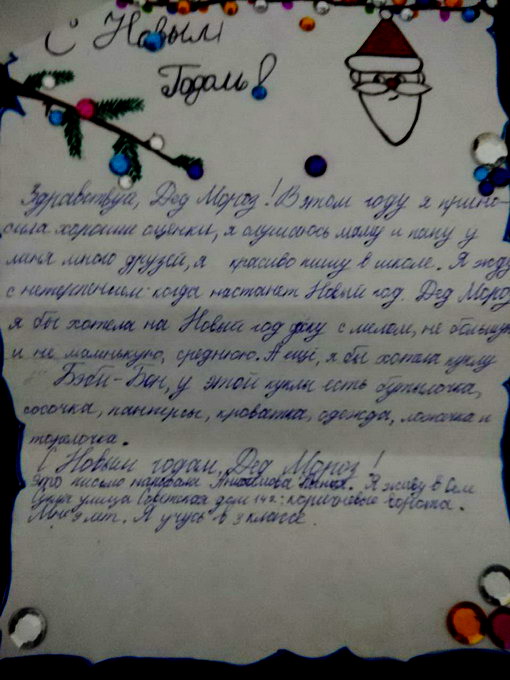 С Новым
Годом!
Здравствуй, Дед Мороз! В этом году я прино-
сила хорошие оценки, я слушаюсь маму и папу у
меня много друзей, я красиво пишу в школе. Я жду
с нетерпением когда настанет Новый год. Дед Мороз
я бы хотела на Новый год доску с мелом, не большую
и не маленькую, среднюю. А ещё, я бы хотела куклу
Бэби-Бон, у этой куклы есть бутылочка,
сосочка, памперсы, кроватка, одежда, ложечка и
торелочка.
С Новым годам, Дед Мороз!
Это письмо написала Я живу в
улица Советская дом коричневые ворота.
Мне 9 лет. Я учусь в 3 классе.